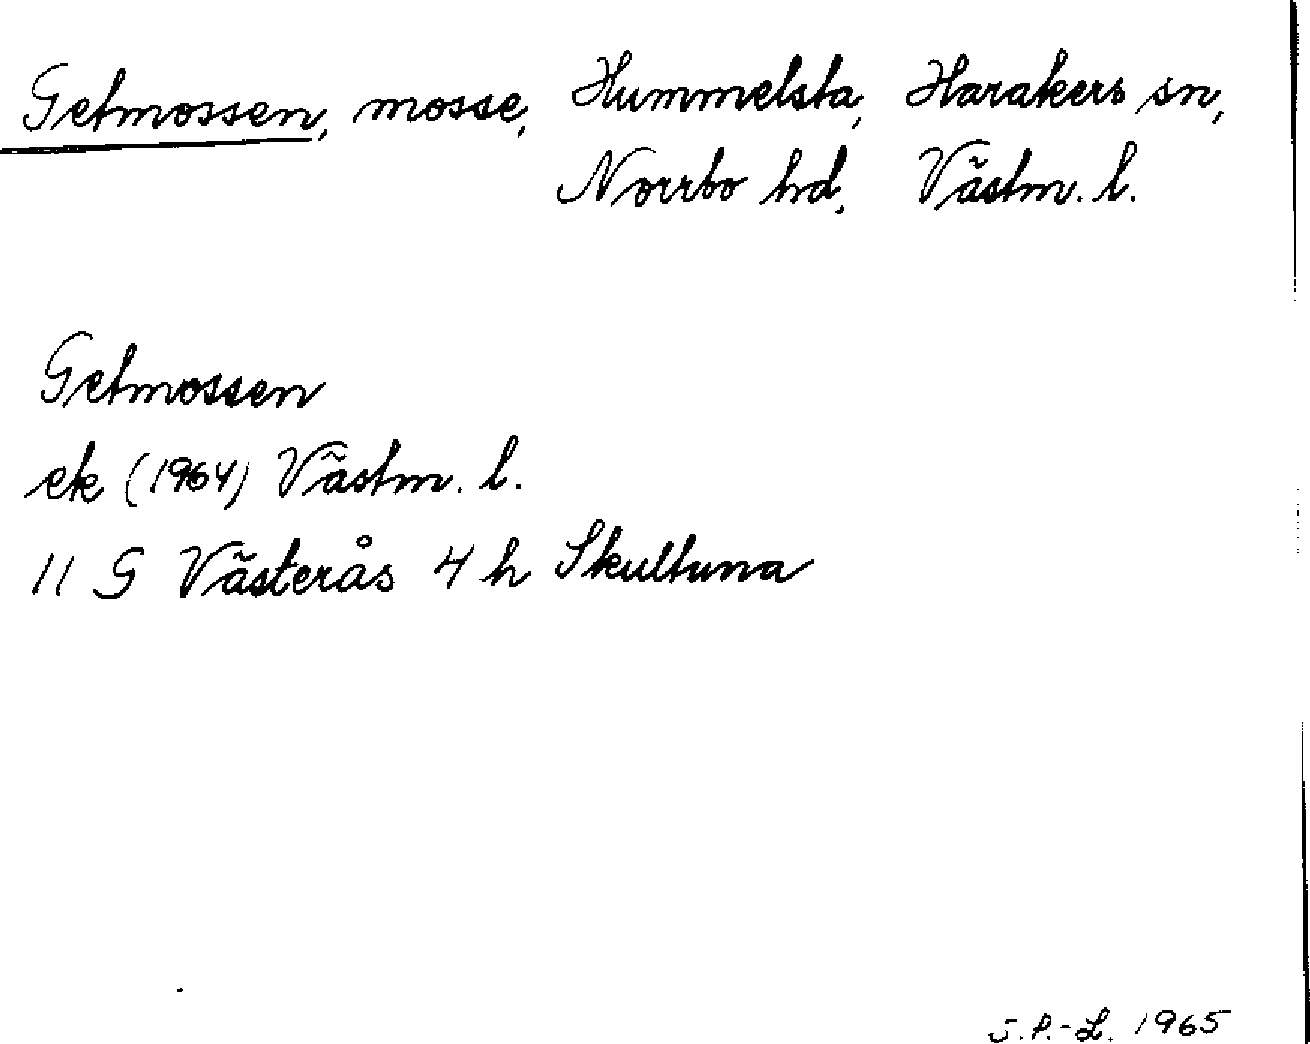 Getmossen, mosse, Hummelsta, Harakers sn,
Norrbo hd, Västm. l.
Getmossen
ek (1964) Västm. l.
11 G Västerås 4 h Skultuna
J.P.-L. 1965